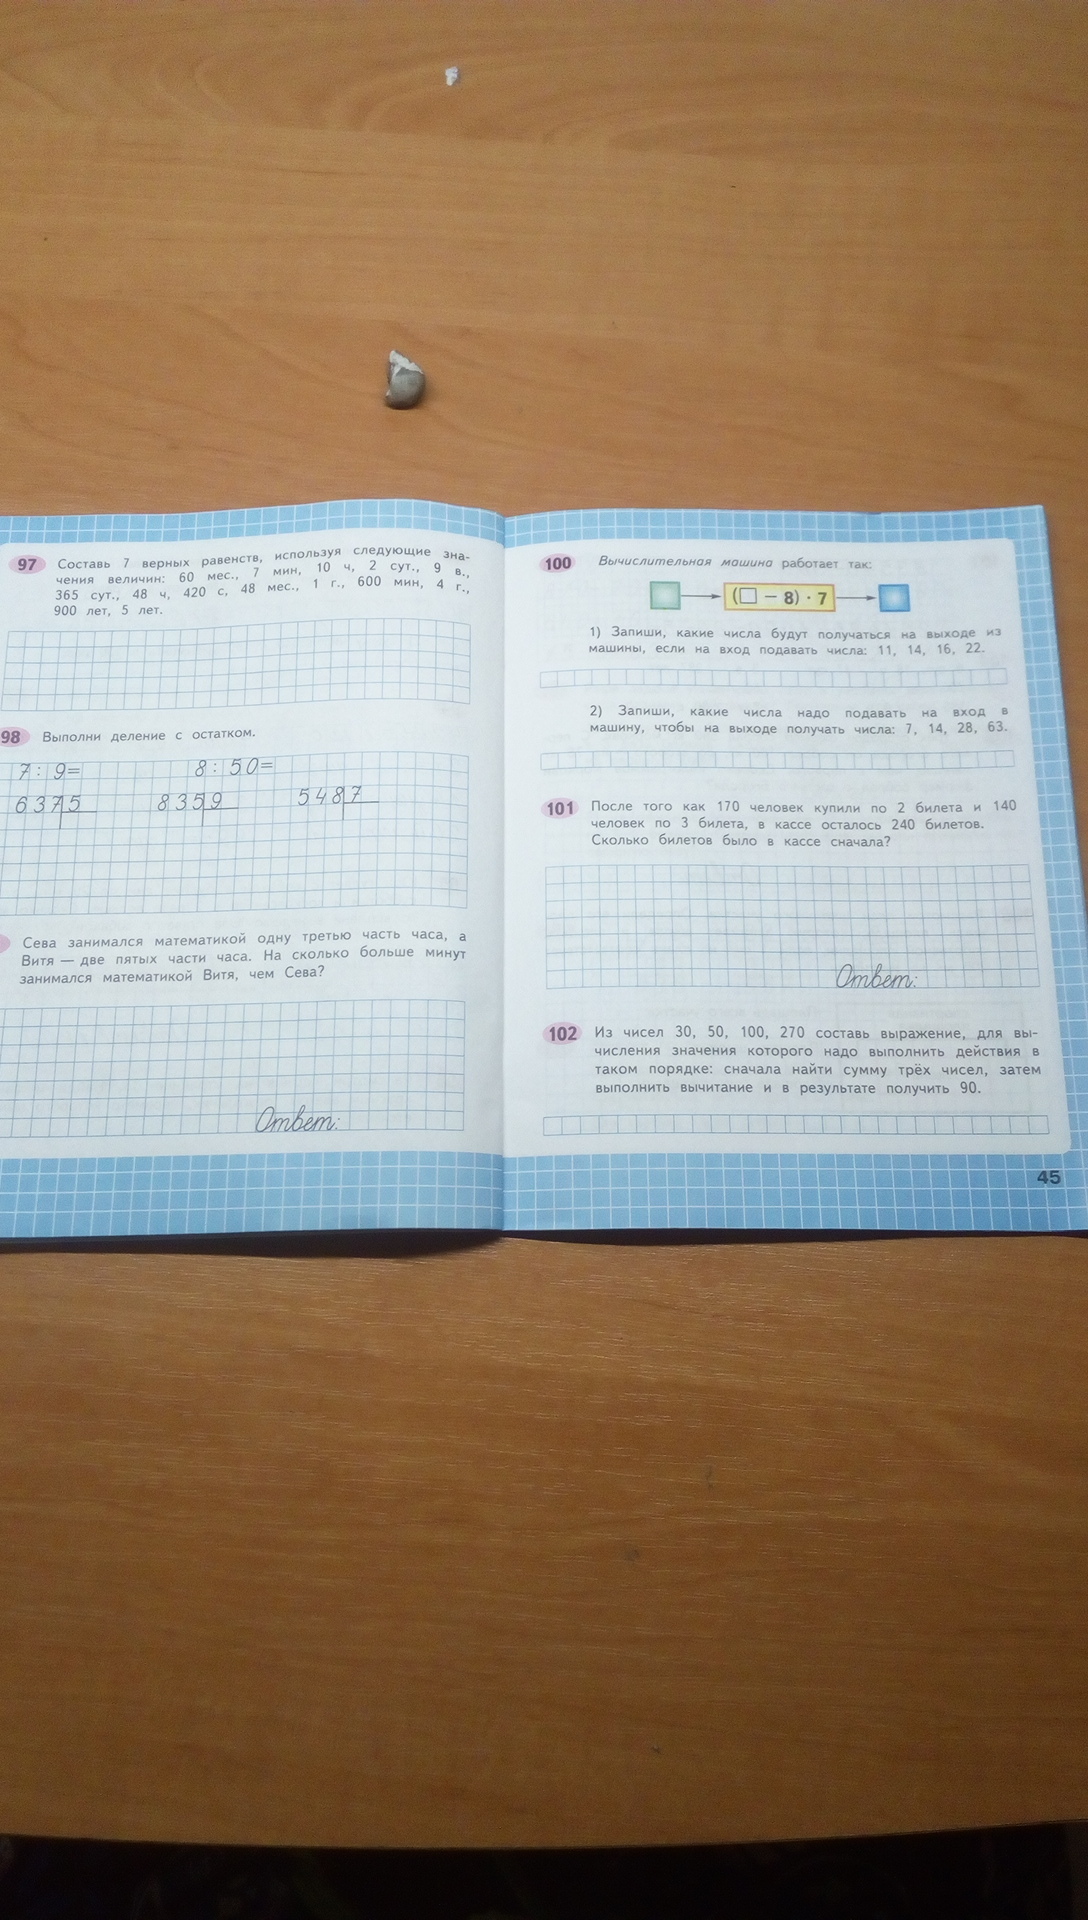 97 Составь 7 верных равенств, используя следующие зна-
чения величин: 60 мес., 7 мин, 10 ч, 2 сут., 9 в.,
365 сут., 48 ч, 420 с, 48 мес., 1 г., 600 мин, 4 г.,
900 лет, 5 лет.
98 Выполни деление с остатком.
7 : 9 = 8 : 50 =
637 5 835 9 548 7
Сева занимался математикой одну третью часть часа, а
Витя — две пятых части часа. На сколько больше минут
занимался математикой Витя, чем Сева?
Ответ:
100 Вычислительная машина работает так:
(□ − 8) · 7
1) Запиши, какие числа будут получаться на выходе из
машины, если на вход подавать числа: 11, 14, 16, 22.
2) Запиши, какие числа надо подавать на вход в
машину, чтобы на выходе получать числа: 7, 14, 28, 63.
101 После того как 170 человек купили по 2 билета и 140
человек по 3 билета, в кассе осталось 240 билетов.
Сколько билетов было в кассе сначала?
Ответ:
102 Из чисел 30, 50, 100, 270 составь выражение, для вы-
числения значения которого надо выполнить действия в
таком порядке: сначала найти сумму трёх чисел, затем
выполнить вычитание и в результате получить 90.
45